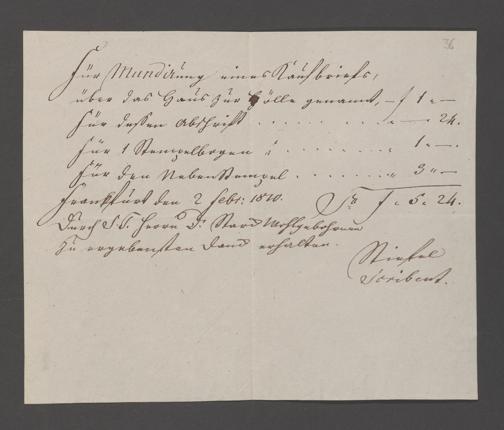 36
Für Mundirung eines Kaufbriefs,
über das Haus zur Hölle genannt, – f 1 „ –
Für dessen Abschrift . . . . . . . „ – 24.
Für 1 Stempelbogen „ . . . . . . . 1 „ –
Für den Nebenstempel . . . . . . „ 3 „ –
Frankfurt den 2 Febr: 1810. Sa f. 5. 24.
Durch S. T. Herrn Dr Starck Wohlgebohren
zu ergebensten Danck erhalten.
Stiefel
Scribent.